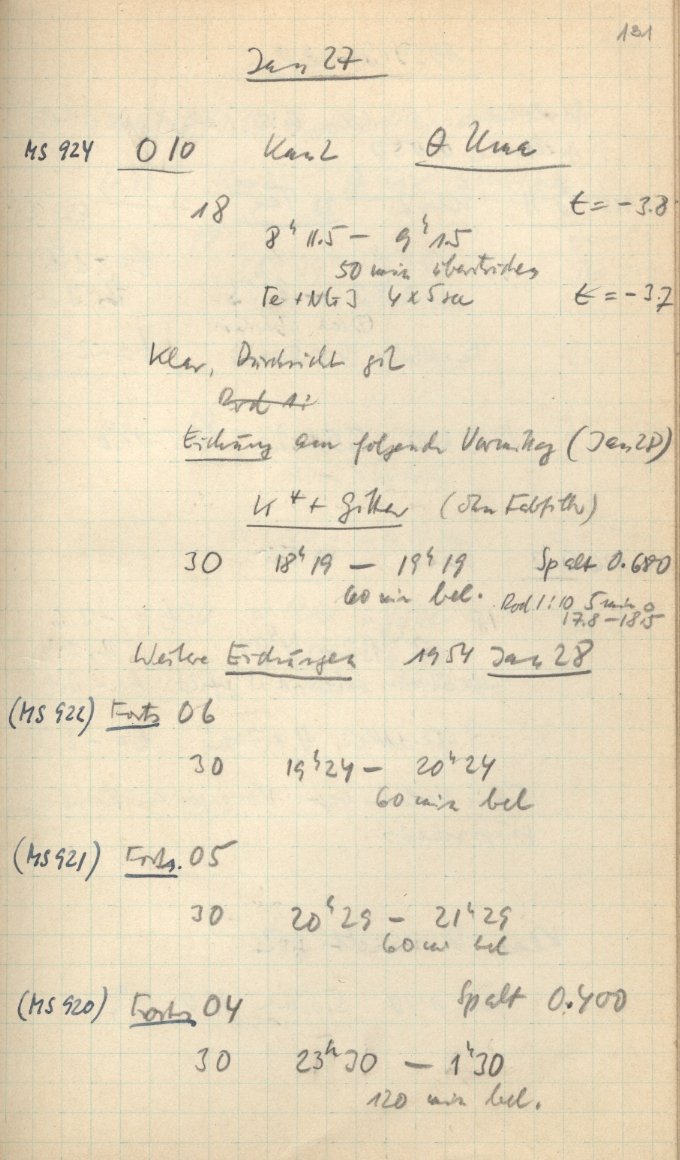 131
Jan 27
MS 924 O 10 θ Uma
18 t = -3.8
8ʰ 11.5 — 9ʰ 1.5
50 min überstrichen
4 x 5 sec t = -3.7
Klar, Durchsicht gut
Eichung am folgenden Vormittag (Jan 28)
+ Gitter (ohne Farbfilter)
30 18ʰ19 — 19ʰ19 Spalt 0.680
60 min bel. Rod 1:10 5 min
17.8 — 18.5
Weitere Eichungen 1954 Jan 28
(MS 922) Forts 06
30 19ʰ24 — 20ʰ24
60 min bel
(MS 921) Forts. 05
30 20ʰ29 — 21ʰ29
60 min bel
(MS 920) Forts 04 Spalt 0.400
30 23ʰ30 — 1ʰ30
120 min bel.